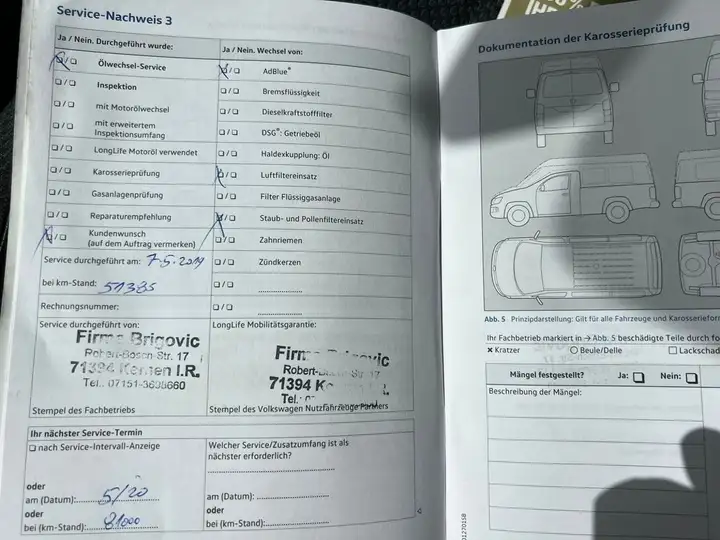 Service-Nachweis 3
Ja / Nein. Durchgeführt wurde:
Ölwechsel-Service
Inspektion
mit Motorölwechsel
mit erweitertem
Inspektionsumfang
LongLife Motoröl verwendet
Karosserieprüfung
Gasanlagenprüfung
Reparaturempfehlung
Kundenwunsch
(auf dem Auftrag vermerken)
Service durchgeführt am: 7.5.2019
bei km-Stand: 51385
Rechnungsnummer:
Service durchgeführt von:
Firma Brigovic
Robert-Bosch-Str. 17
71394 Kernen I.R.
Tel.: 07151-3698660
Stempel des Fachbetriebs
Ja / Nein. Wechsel von:
AdBlue®
Bremsflüssigkeit
Dieselkraftstofffilter
DSG®: Getriebeöl
Haldexkupplung: Öl
Luftfiltereinsatz
Filter Flüssiggasanlage
Staub- und Pollenfiltereinsatz
Zahnriemen
Zündkerzen
LongLife Mobilitätsgarantie:
71394
Stempel des Volkswagen Nutzfahrzeuge Partners
Ihr nächster Service-Termin
nach Service-Intervall-Anzeige
oder
am (Datum): 5/20
oder
bei (km-Stand): 81000
Welcher Service/Zusatzumfang ist als
nächster erforderlich?
am (Datum):
oder
bei (km-Stand):
Dokumentation der Karosserieprüfung
Abb. 5 Prinzipdarstellung: Gilt für alle Fahrzeuge und Karosseriefor
Ihr Fachbetrieb markiert in → Abb. 5 beschädigte Teile durch fo
× Kratzer
Beule/Delle
Lackschad
Mängel festgestellt? Ja: Nein:
Beschreibung der Mängel: